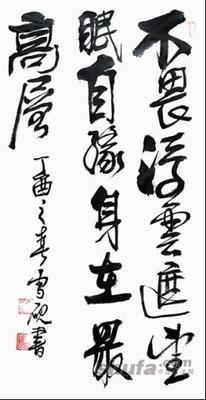 不畏浮雲遮望
眼自緣身在最
高层
丁酉之春雪砚書
shufa.com